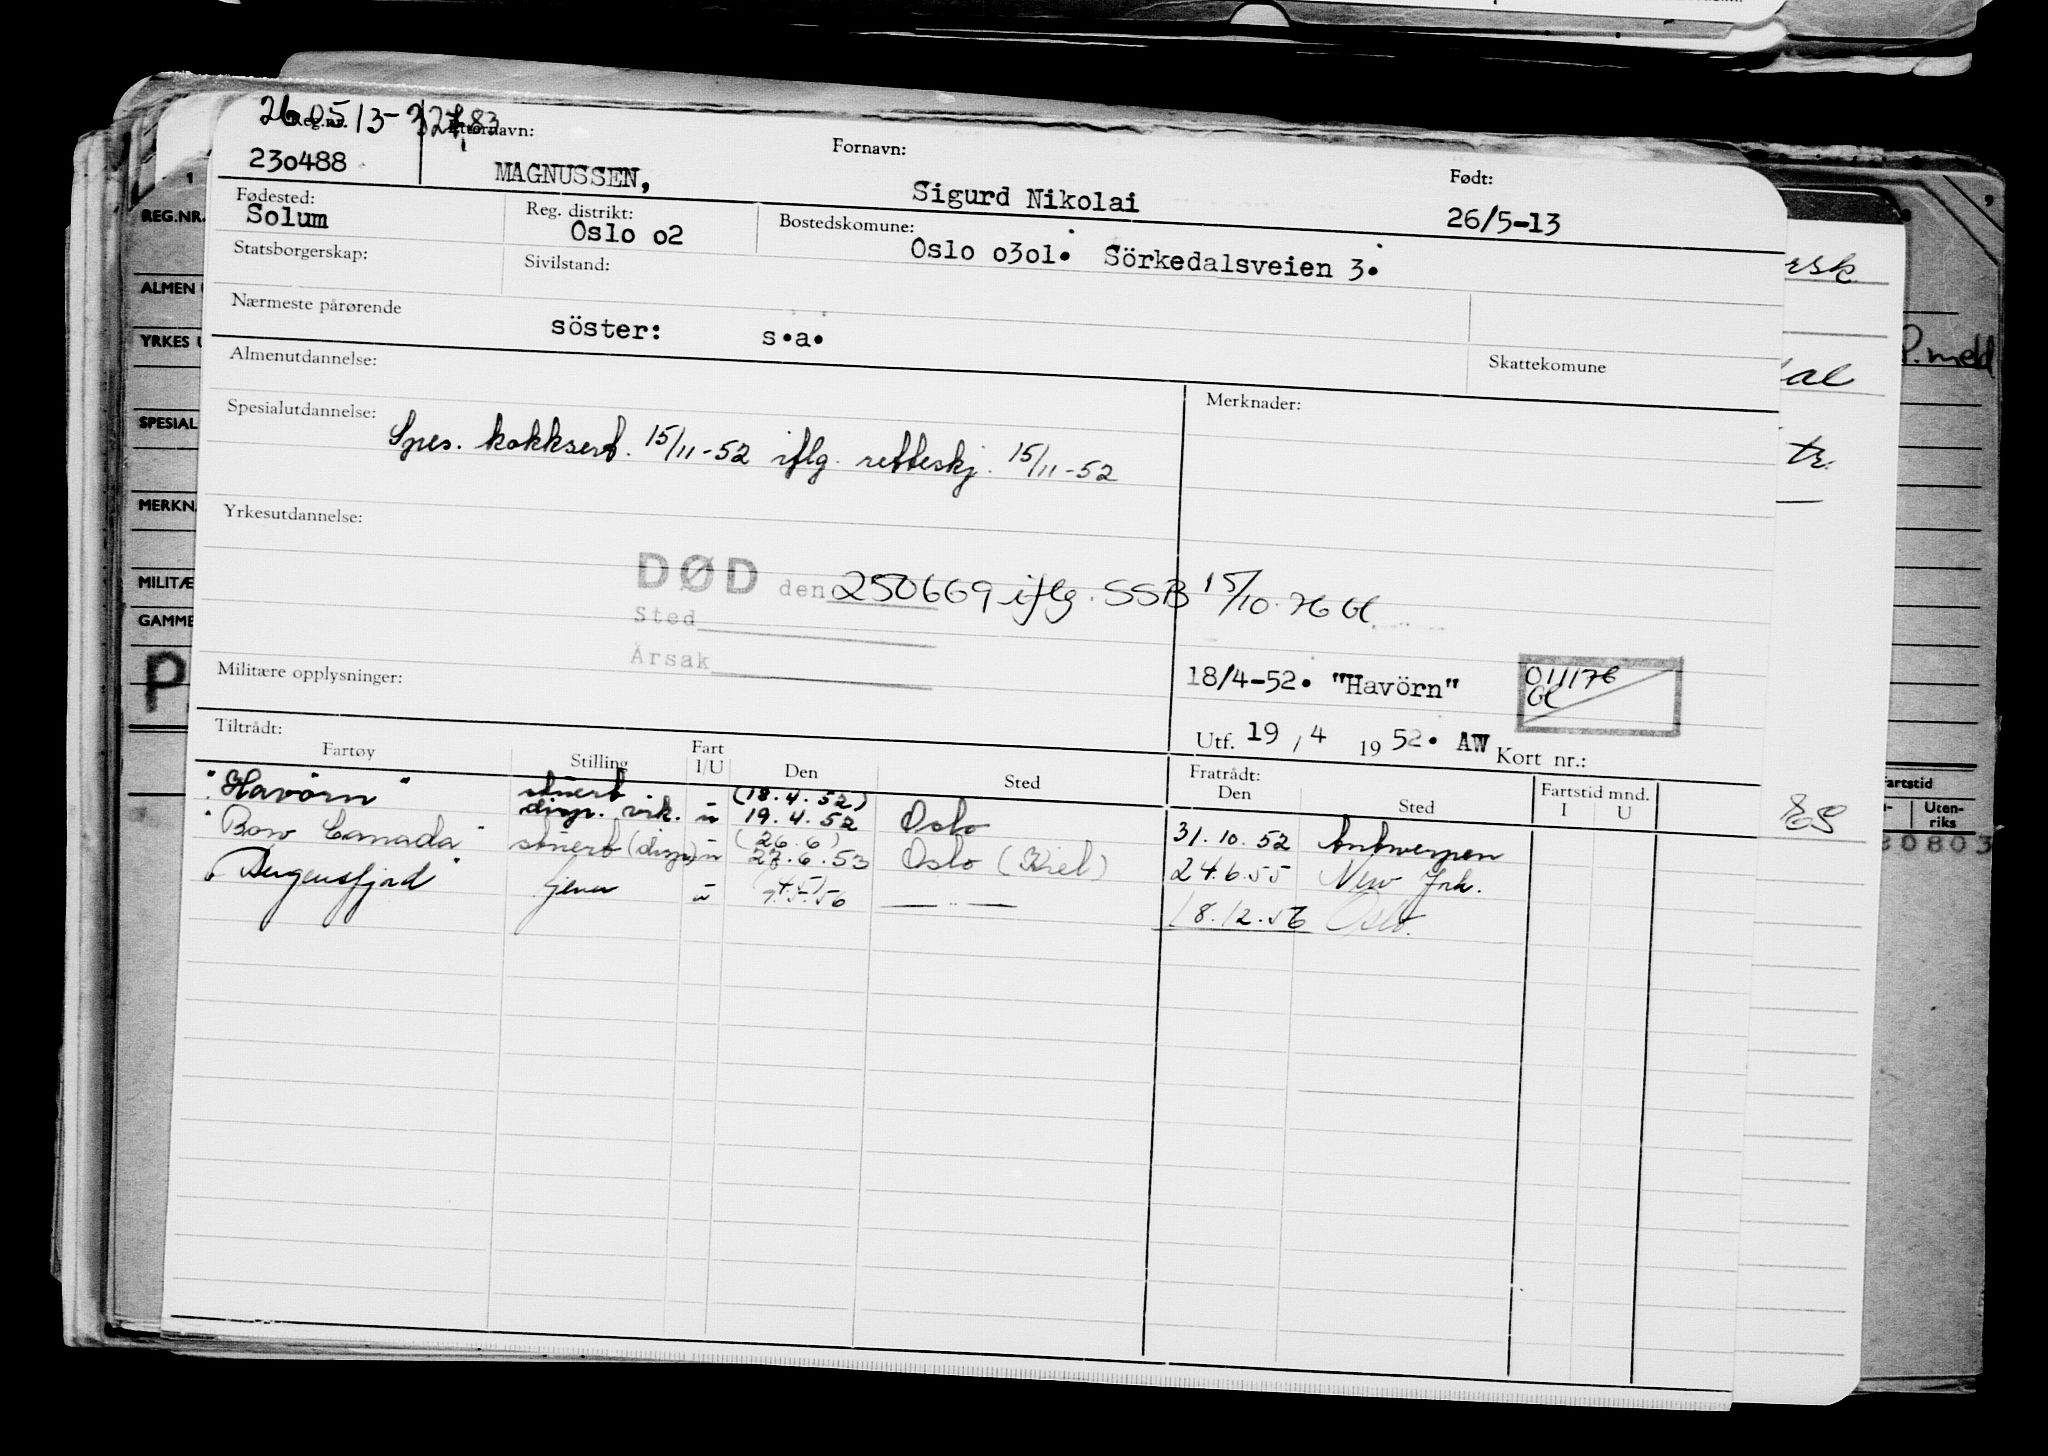 260513-
Reg.nr. Etternavn: Fornavn: Født:
230488 MAGNUSSEN, Sigurd Nikolai 26/5-13
Fødested: Reg. distrikt: Bostedskomune:
Solum Oslo o2 Oslo o3o1. Sörkedalsveien 3.
Statsborgerskap: Sivilstand:
Nærmeste pårørende
söster: s.a.
Almenutdannelse: Skattekomune
Spesialutdannelse: Merknader:
Spes. kokksert. 15/11-52 iflg. retteskj. 15/11-52
Yrkesutdannelse:
DØD den 250669 iflg. SSB 15/10.76 Gl
Sted
Årsak
Militære opplysninger: 18/4-52. "Havörn" 011176
Gl
Utf. 19/4 1952. AW Kort nr.:
Tiltrådt: Fratrådt:
Fartøy Stilling Fart I/U Den Sted Den Sted Fartstid mnd. I U
"Havörn" stuert disp. vik. u (18.4.52) 19.4.52 Oslo 31.10.52 Antwerpen
"Bow Canada" stuert (disp) u (26.6) 27.6.53 Oslo (Kiel) 24.6.55 New York.
"Bergensfjord" u 7.5.56 — " — 18.12.56 Oslo.
REG.NR.
ALMEN
YRKES
SPESIAL
MERKN.
MILITÆ
GAMME
P
rsk.
P.meld
tr.
Fartstid
Uten-
riks
30803